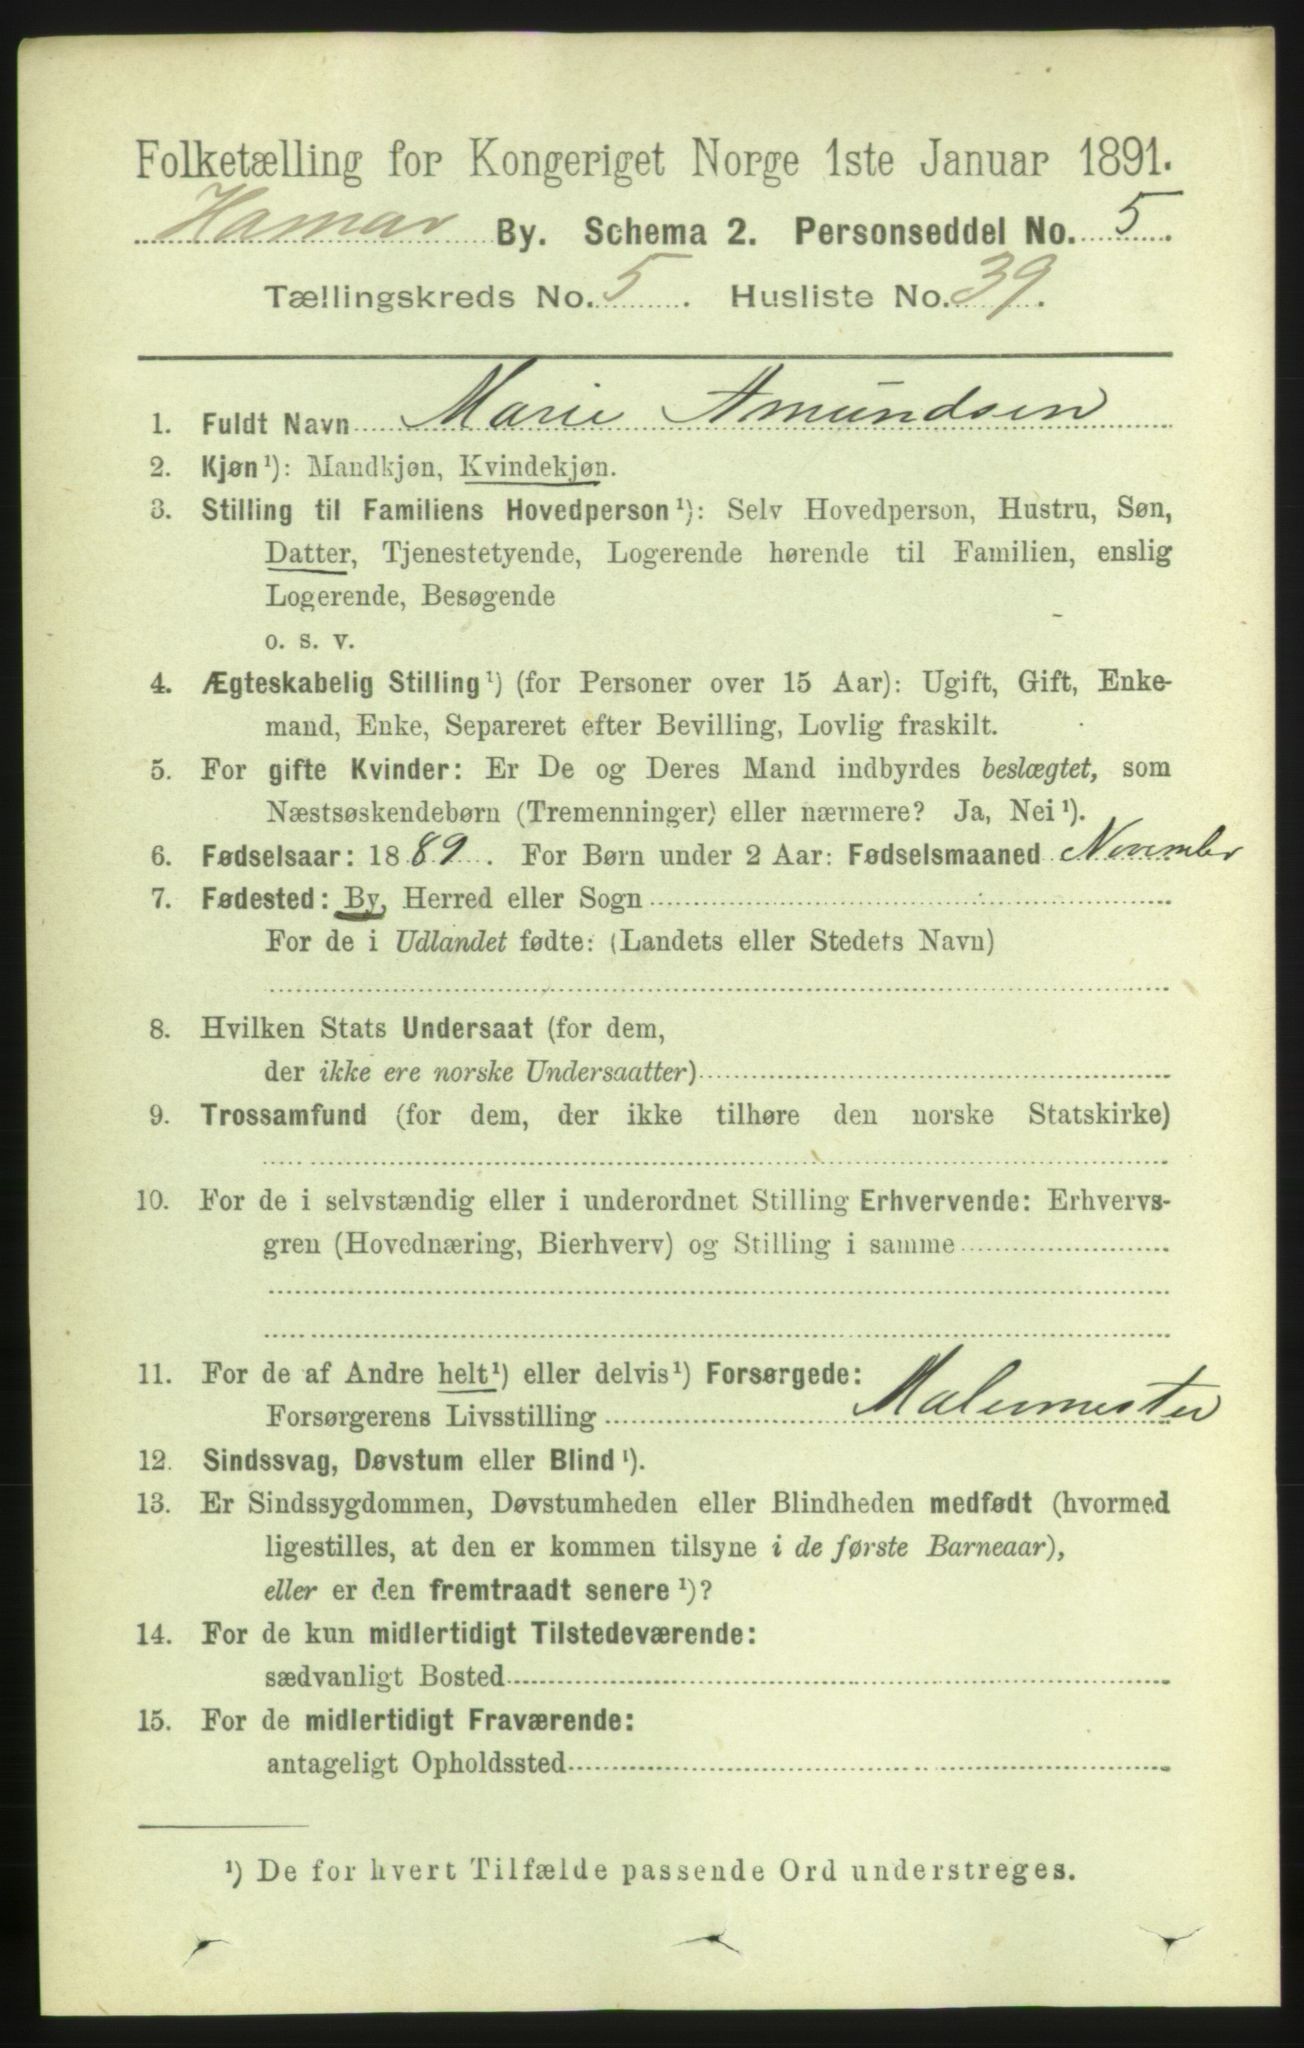 Folketælling for Kongeriget Norge 1ste Januar 1891.
Hamar By. Schema 2. Personseddel No. 5.
Tællingskreds No. 5. Husliste No. 39.
1. Fuldt Navn Marie Amundsen
2. Kjøn¹): Mandkjøn, Kvindekjøn.
3. Stilling til Familiens Hovedperson¹): Selv Hovedperson, Hustru, Søn,
Datter, Tjenestetyende, Logerende hørende til Familien, enslig
Logerende, Besøgende
o. s. v.
4. Ægteskabelig Stilling¹) (for Personer over 15 Aar): Ugift, Gift, Enke-
mand, Enke, Separeret efter Bevilling, Lovlig fraskilt.
5. For gifte Kvinder: Er De og Deres Mand indbyrdes beslægtet, som
Næstsøskendebørn (Tremenninger) eller nærmere? Ja, Nei¹).
6. Fødselsaar: 1889. For Børn under 2 Aar: Fødselsmaaned November
7. Fødested: By, Herred eller Sogn
For de i Udlandet fødte: (Landets eller Stedets Navn)
8. Hvilken Stats Undersaat (for dem,
der ikke ere norske Undersaatter)
9. Trossamfund (for dem, der ikke tilhøre den norske Statskirke)
10. For de i selvstændig eller i underordnet Stilling Erhvervende: Erhvervs-
gren (Hovednæring, Bierhverv) og Stilling i samme
11. For de af Andre helt¹) eller delvis¹) Forsørgede:
Forsørgerens Livsstilling Malermester
12. Sindssvag, Døvstum eller Blind¹).
13. Er Sindssygdommen, Døvstumheden eller Blindheden medfødt (hvormed
ligestilles, at den er kommen tilsyne i de første Barneaar),
eller er den fremtraadt senere¹)?
14. For de kun midlertidigt Tilstedeværende:
sædvanligt Bosted
15. For de midlertidigt Fraværende:
antageligt Opholdssted
¹) De for hvert Tilfælde passende Ord understreges.